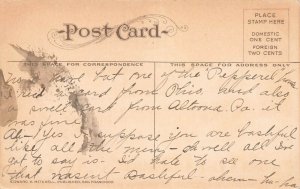 Post Card
PLACE
STAMP HERE
DOMESTIC
ONE CENT
FOREIGN
TWO CENTS
THIS SPACE FOR CORRESPONDENCE
THIS SPACE FOR ADDRESS ONLY
have but one of the Pepperel
card from Ohio. and also
a swell card from Altoona Pa. it
was fine
Al- Yes I suppose you are bashful
like all the men - oh well all I've
got to say is - I'd hate to see one
that wasent Bashful - ahem - ha-ha
EDWARD H. MITCHELL, PUBLISHER, SAN FRANCISCO